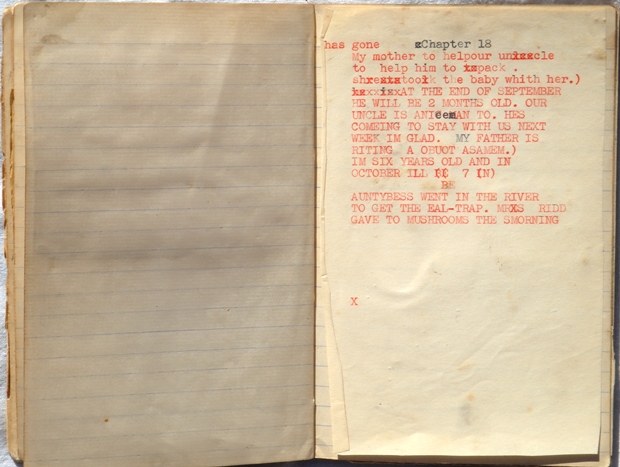 has gone zChapter 18
My mother to helpour unixxxcle
to help him to xxpack .
shxextxtooik the baby whith her.)
xxxxixxAT THE END OF SEPTEMBER
HE WILL BE 2 MONTHS OLD. OUR
UNCLE IS ANICeemAN TO. HES
COMEING TO STAY WITH US NEXT
WEEK IM GLAD. MY FATHER IS
RITING A OBUOT ASAMEM.)
IM SIX YEARS OLD AND IN
OCTOBER ILL 7 IN)
BE
AUNTYBESS WENT IN THE RIVER
TO GET THE EAL-TRAP. MRXS RIDD
GAVE TO MUSHROOMS THE SMORNING
X